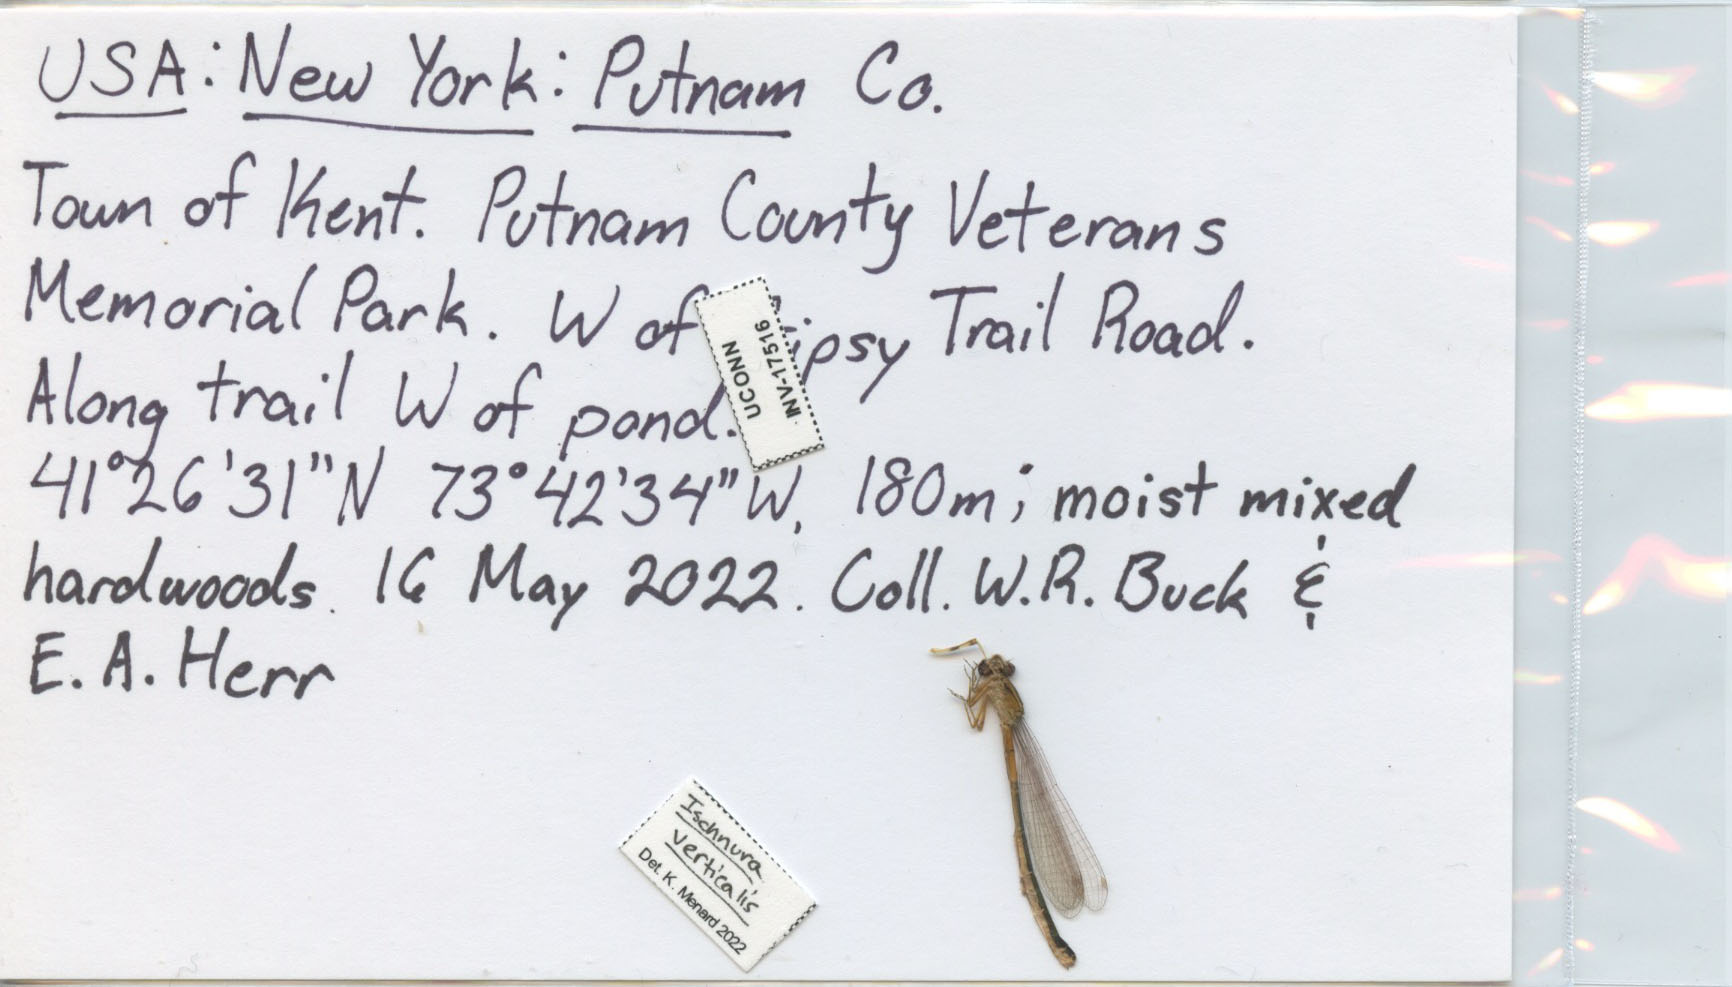 USA: New York: Putnam Co.
Town of Kent. Putnam County Veterans
Memorial Park. W of Gipsy Trail Road.
Along trail W of pond.
41°26'31"N 73°42'34"W, 180m; moist mixed
hardwoods. 16 May 2022. Coll. W.R. Buck &
E. A. Herr
UCONN
INV-17516
Ischnura
verticalis
Det. K. Menard 2022